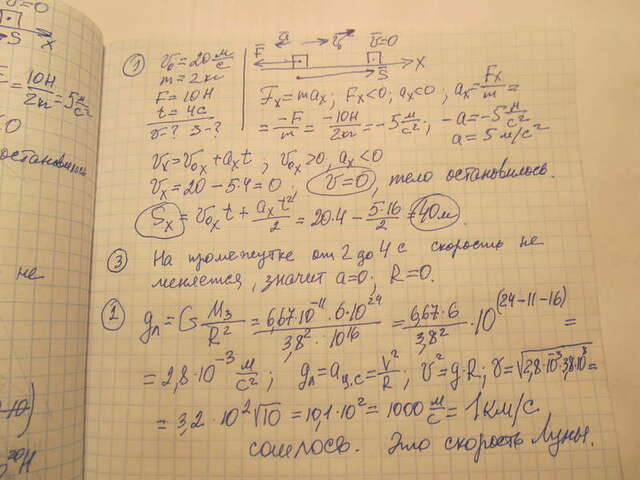 v=0
S x
10Н
2кг = 5 м/с²
остановилось
не
20Н
① v₀ = 20 м/с
m = 2 кг
F = 10Н
t = 4с
v-? S-?
F a v v=0 X
S
Fx = max; Fx<0; ax<0; ax = Fx/m =
= -F/m = -10Н/2кг = -5 м/с²; -a = -5 м/с²
a = 5 м/с²
vx = v₀x + axt; v₀x>0, ax<0
vx = 20 - 5·4 = 0; v=0, тело остановилось.
Sx = v₀xt + axt²/2 = 20·4 - 5·16/2 = 40м.
③ На промежутке от 2 до 4 с скорость не
меняется, значит a=0; R=0.
② gл = G Mз/R² = 6,67·10⁻¹¹·6·10²⁴/3,8²·10¹⁶ = 6,67·6/3,8² · 10^(24-11-16) =
= 2,8·10⁻³ м/с²; gл = aц.с = v²/R; v² = g·R; v = √2,8·10⁻³·3,8·10⁸ =
= 3,2·10²√10 = 10,1·10² = 1000 м/с = 1 км/с
сошлось. Это скорость Луны.